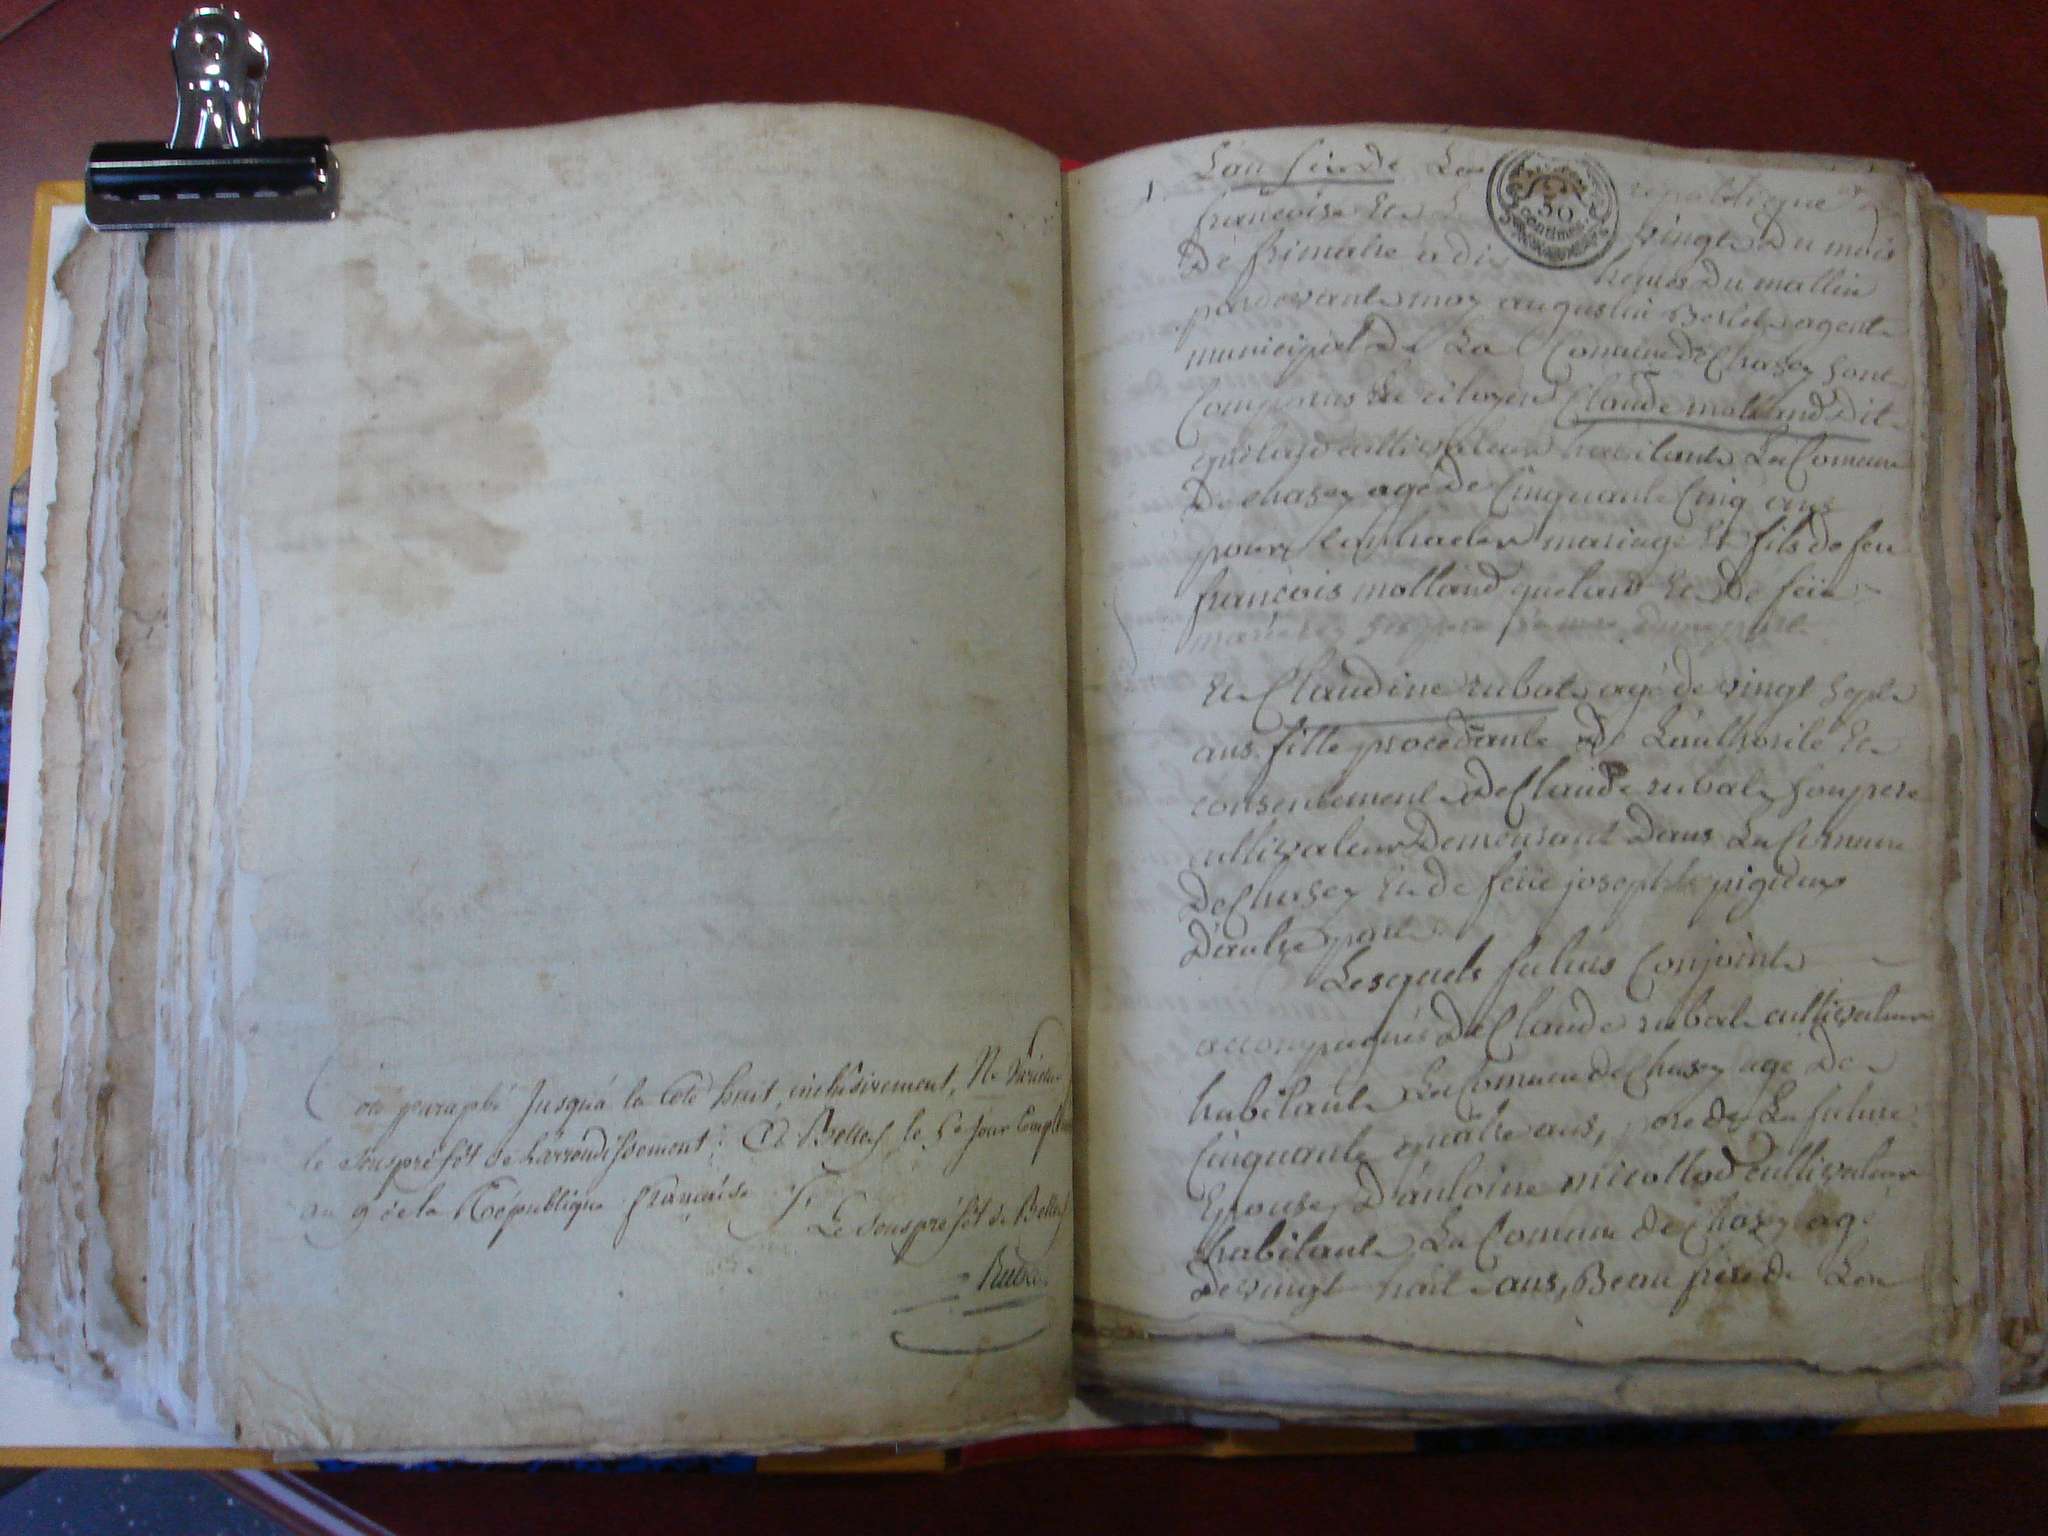 Coté paraphé Jusqu'à la Cote huit, inclusivement, Ne Varietur
le Souspréfét de L'arrondissement. A Belley le 5e Jour Complem
an 9 de la République française /.
Le Souspréfét de Belley
Rubat
1.
L'an De La république
françoise Et vingt Du mois
De frimaire a di heures Du mattin
pardevant moy augustin Berlet agent
municipal De La Comune De Chasey sont
Comparus Le citoyen Claude molland Dit
quelard cultivateur habitant La Comune
De chasey agé De Cinquante Cinq ans
pour Contracter mariage Et fils de feu
françois molland quelard Et De feüe
marie ses pere Et mere D'une part
Et Claudine rubat agé de vingt Sept
ans fille procedante De L'authorité Et
consentement De Claude rubat Son pere
cultivateur Demeurant Dans La Comune
De Chasey Et de feüe josephte
D'autre part
Lesquels futurs Conjoints
accompagnés De Claude rubat cultivateur
habitant La Comune de Chasey agé De
Cinquante quatre ans, pere de La future
Epouse, D'antoine micollod cultivateur
habitant La Comune De Chasey agé
De vingt huit ans, Beau frere de La
50
CENTIMES